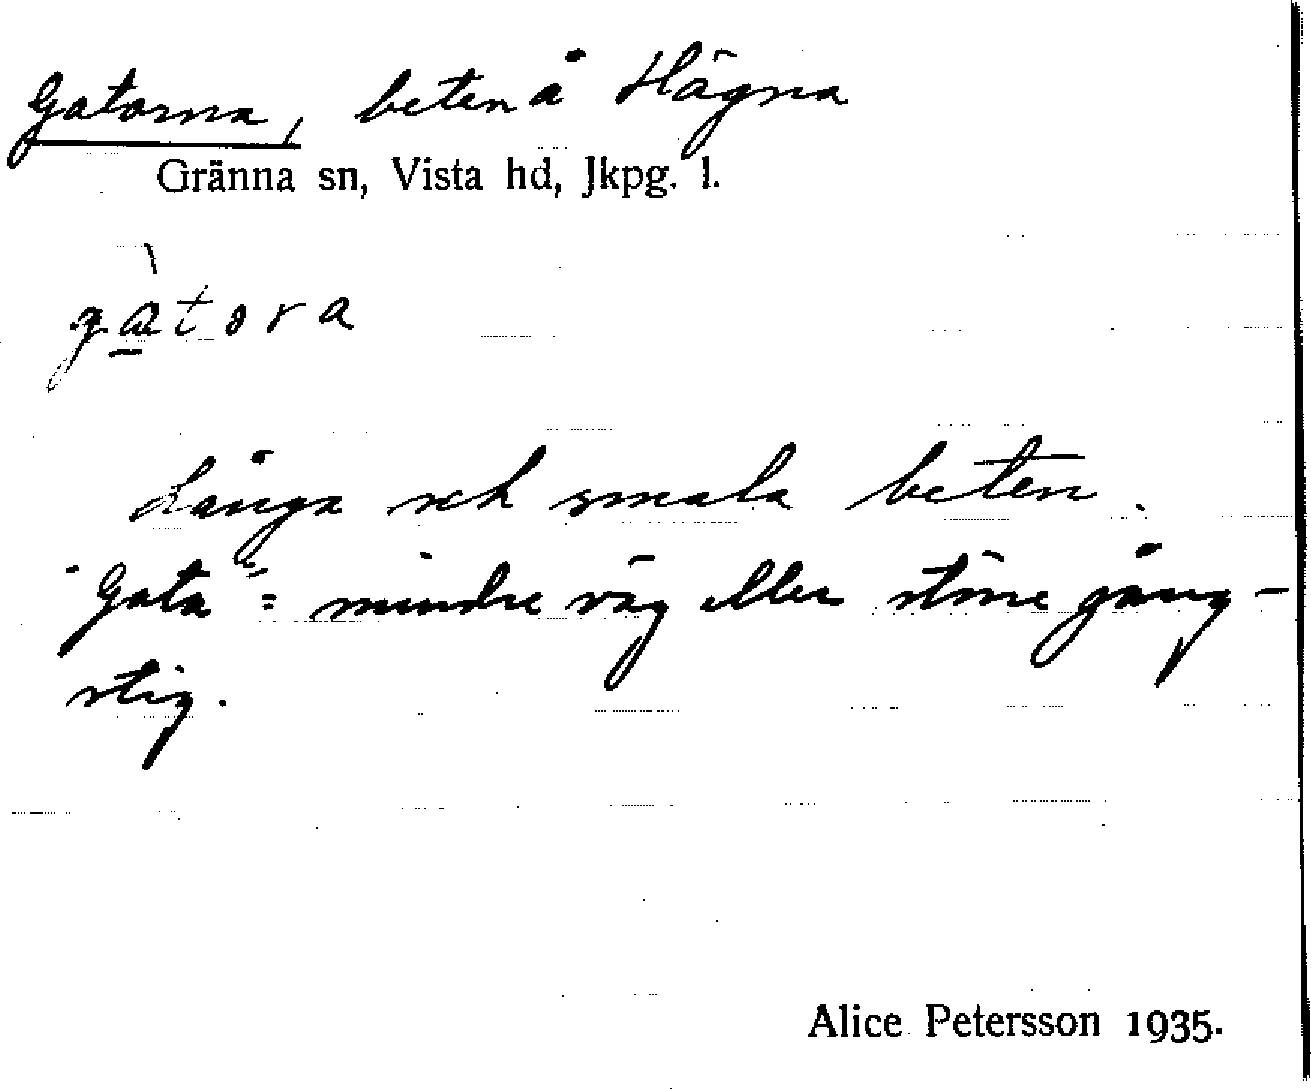 Gatorna, beten å Hägna
Gränna sn, Vista hd, Jkpg. l.
gàtora
Långa och smala beten.
"Gata" = mindre väg eller större gång-
stig.
Alice Petersson 1935.